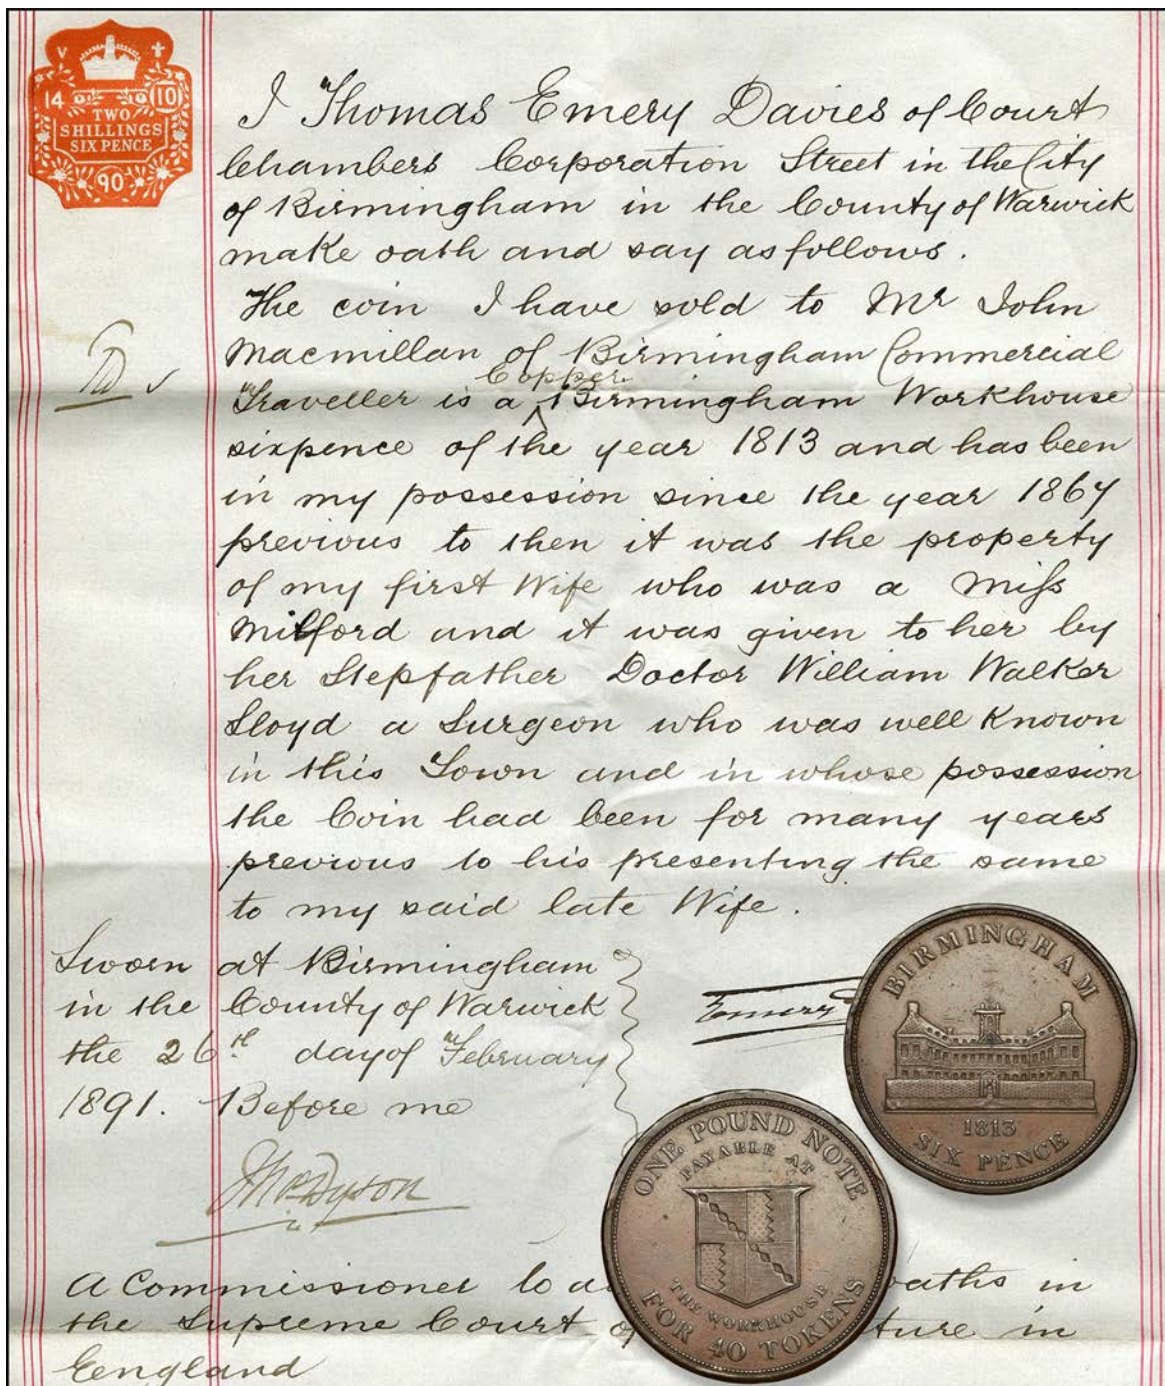 V
14 10
TWO
SHILLINGS
SIX PENCE
90
I Thomas Emery Davies of Court
Chambers Corporation Street in the City
of Birmingham in the County of Warwick
make oath and say as follows.
The coin I have sold to Mr John
Macmillan of Birmingham Commercial
Copper
Traveller is a Birmingham Workhouse
sixpence of the year 1813 and has been
in my possession since the year 1867
previous to then it was the property
of my first Wife who was a Miss
Milford and it was given to her by
her Stepfather Doctor William Walker
Lloyd a Surgeon who was well known
in this Town and in whose possession
the Coin had been for many years
previous to his presenting the same
to my said late Wife.
Sworn at Birmingham
in the County of Warwick
the 26th day of February
1891. Before me
Emery
Dyson
A Commissioner to a oaths in
the Supreme Court of ture in
Eengland
BIRMINGHAM
1813
SIX PENCE
ONE POUND NOTE
PAYABLE AT
THE WORKHOUSE
FOR 40 TOKENS